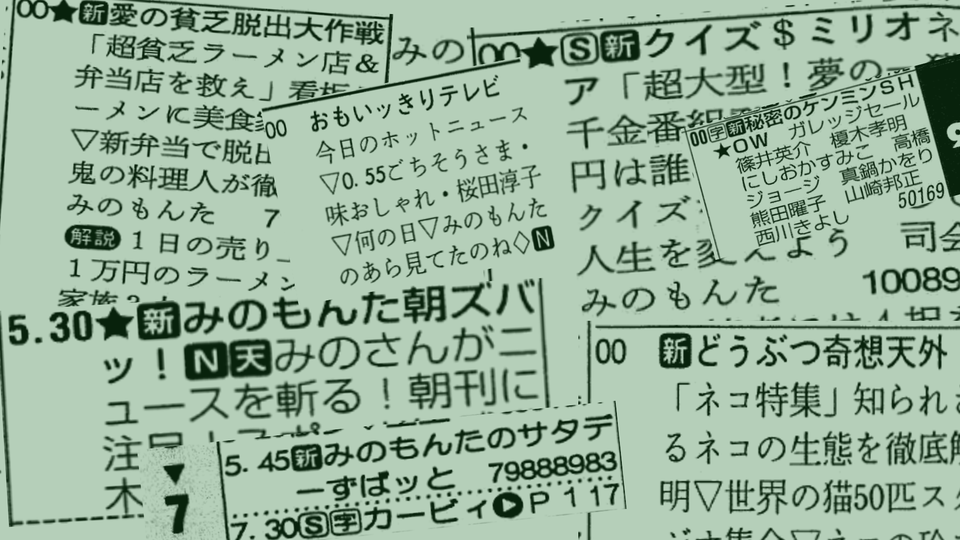 00★新愛の貧乏脱出大作戦
「超貧乏ラーメン店&
弁当店を救え」看板
ーメンに美食
▽新弁当で脱出
鬼の料理人が徹
みのもんた 7
解説 1日の売り
1万円のラーメン
みの
00★S新クイズ$ミリオネ
ア「超大型!夢の一
千金番組
円は誰
クイズ
人生を変えよう 司会
みのもんた 10089
00 おもいッきりテレビ
今日のホットニュース
▽0.55ごちそうさま・
味おしゃれ・桜田淳子
▽何の日▽みのもんた
のあら見てたのね◇N
00字新秘密のケンミンSH
★OW ガレッジセール
篠井英介 榎木孝明
にしおかすみこ 高橋
ジョージ 真鍋かをり
熊田曜子 山崎邦正
西川きよし 50169
5.30★新みのもんた朝ズバ
ッ!N天みのさんがニ
ュースを斬る!朝刊に
注目
木
▼
7
5.45新みのもんたのサタデ
ーずばッと 79888983
7.30S字カービィ▶P117
00 新どうぶつ奇想天外
「ネコ特集」知られざ
るネコの生態を徹底解
明▽世界の猫50匹ス